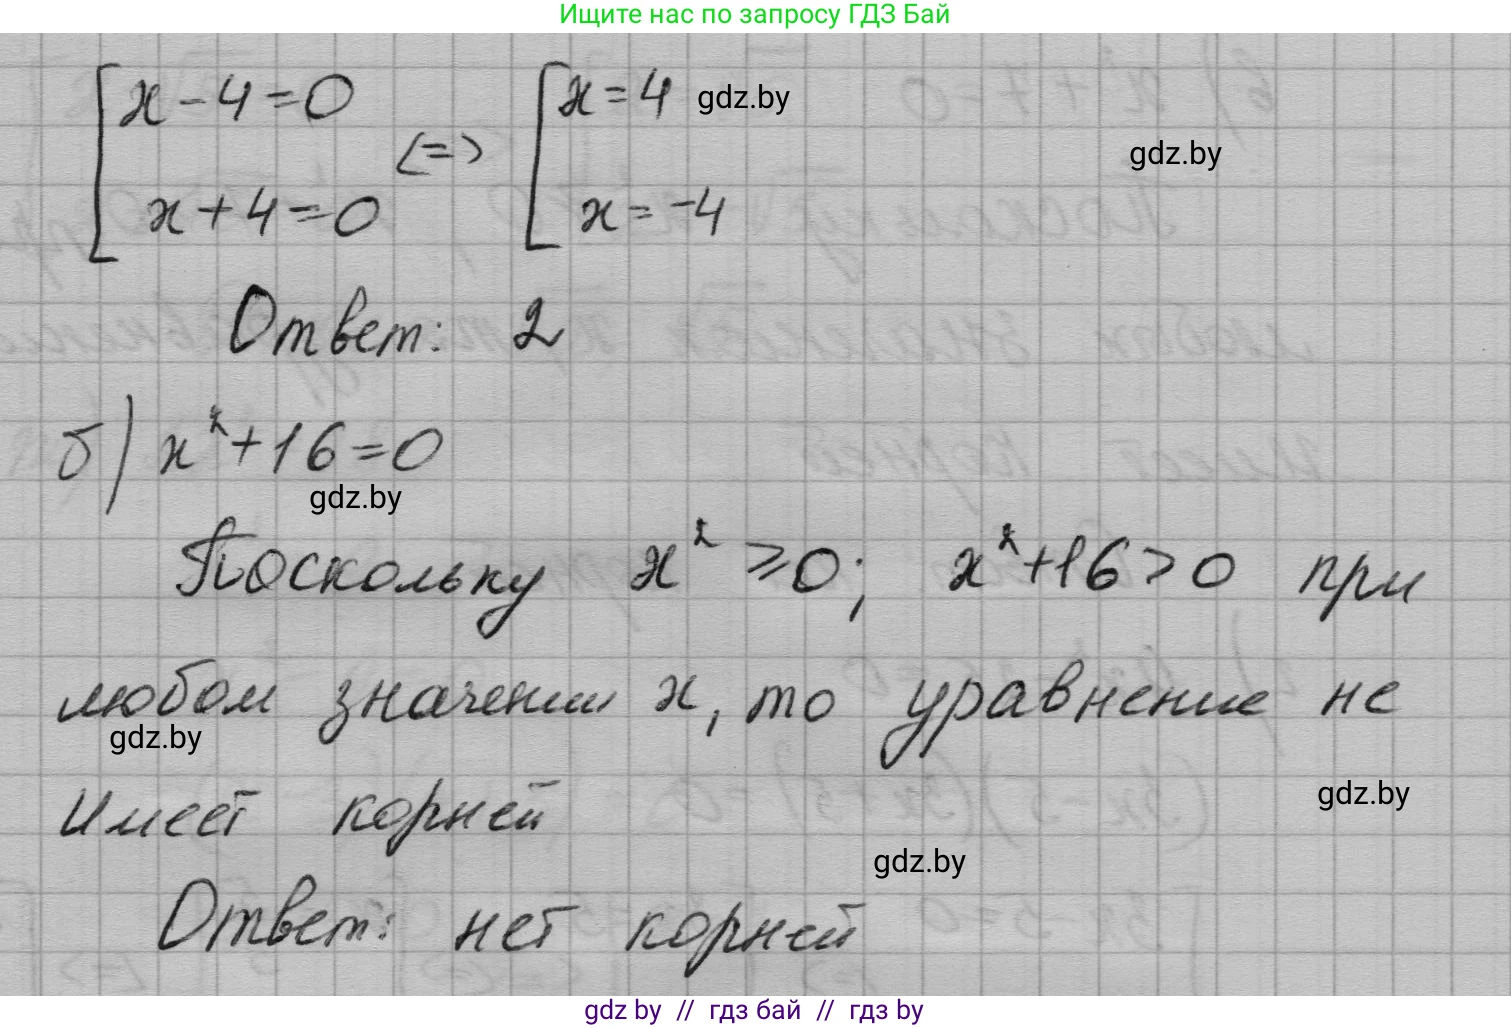 Ищите нас по запросу ГДЗ Бай
x-4=0 <=> x=4 gdz.by
gdz.by
x+4=0 x=-4
Ответ: 2
б) x²+16=0
gdz.by
Поскольку x² ⩾0; x²+16>0 при
любом значении x, то уравнение не
gdz.by
имеет корней
gdz.by
gdz.by
Ответ: нет корней
gdz by // гдз бай // гдз by